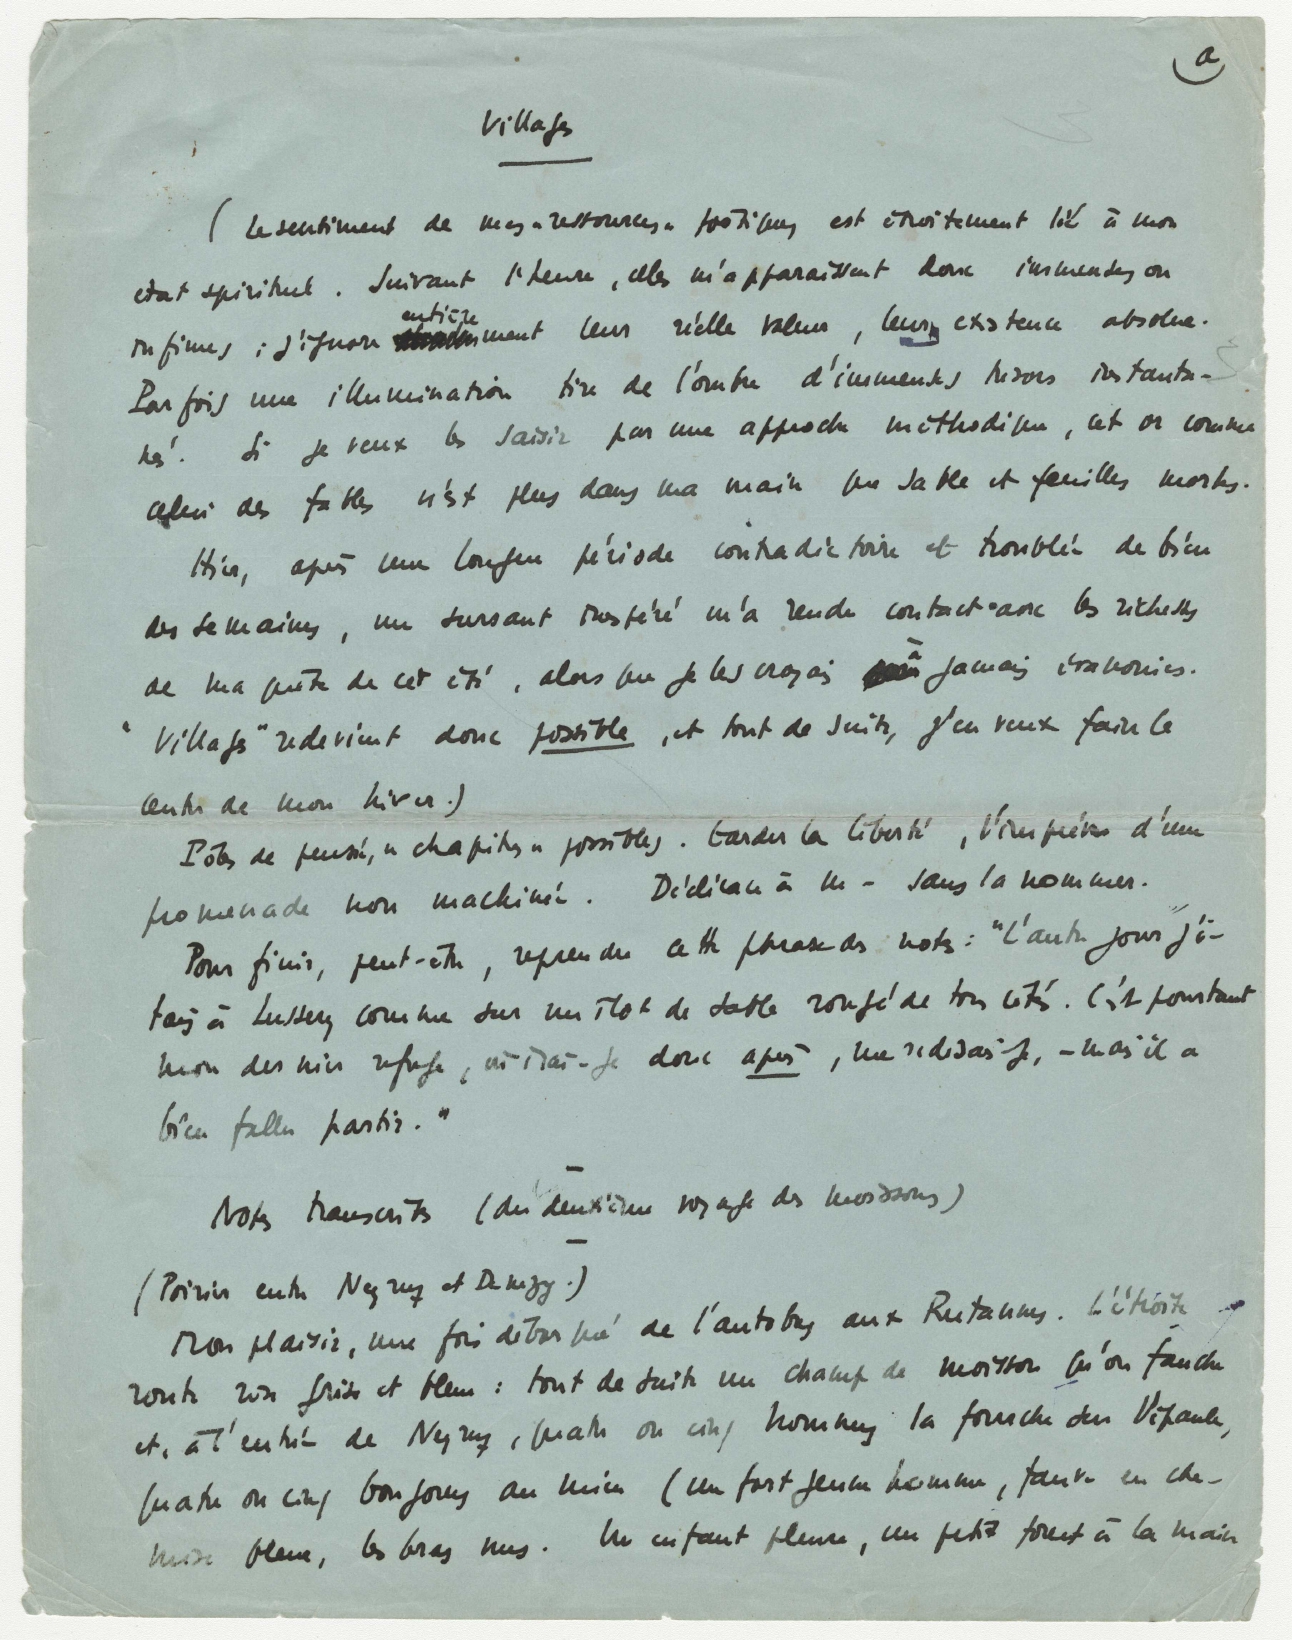 a
Villages
( Le sentiment de mes « ressources » poétiques est étroitement lié à mon
état spirituel. Suivant l'heure, elles m'apparaissent donc immenses ou
infimes ; j'ignore entièrement leur réelle valeur, leur existence absolue.
Parfois une illumination tire de l'ombre d'immenses trésors instanta-
nés. Si je veux les saisir par une approche méthodique, cet or comme
celui des fables n'est plus dans ma main que sable et feuilles mortes.
Hier, après une longue période contradictoire et troublée de bien
des semaines, un sursaut inespéré m'a rendu contact avec les richesses
de ma quête de cet été, alors que je les croyais à jamais évanouies.
"Villages" redevient donc possible, et tout de suite, j'en veux faire le
centre de mon hiver.)
Pôles de pensée, « chapitres » possibles. Garder la liberté, l'imprévu d'une
promenade non machinée. Dédicace à M - sans la nommer.
Pour finir, peut-être, reprendre cette phrase des notes : "L'autre jour j'é-
tais à Lussery comme sur un îlot de sable rongé de tous côtés. C'est pourtant
mon dernier refuge, où irai-je donc après, me redisais-je, - mais il a
bien fallu partir."
Notes transcrites (du deuxième voyage des moissons)
(Poirier entre Neyruz et Denezy.)
Mon plaisir, une fois débarqué de l'autobus aux Rutannes. L'étroite
route rose grise et bleue : tout de suite un champ de moisson qu'on fauche
et, à l'entrée de Neyruz, quatre ou cinq hommes la fourche sur l'épaule,
quatre ou cinq bonjours au mien (un fort jeune homme, fauve en che-
mise bleue, les bras nus. Un enfant pleure, un petit fouet à la main